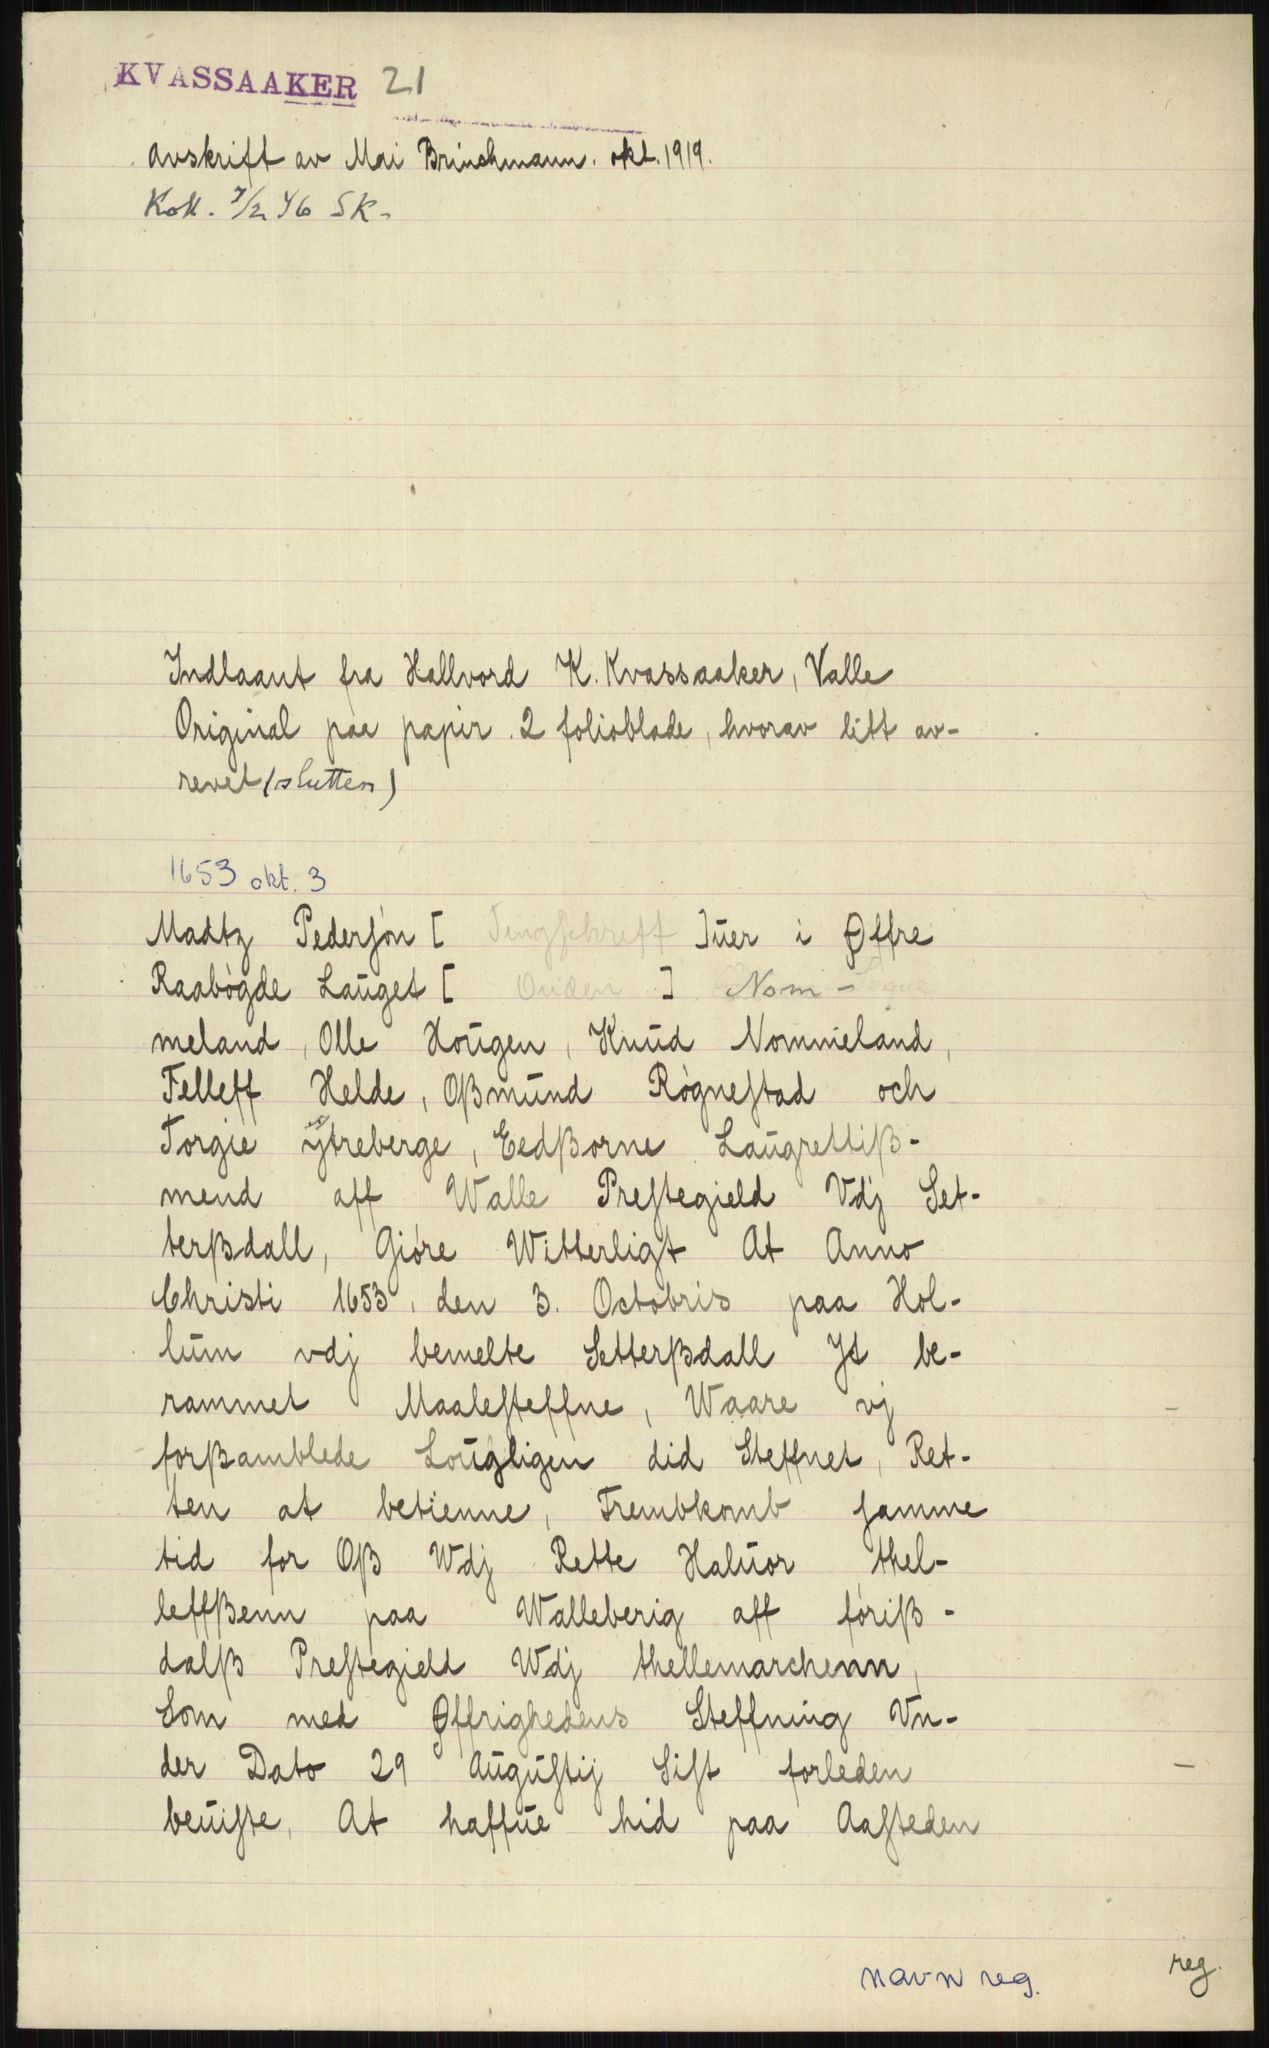 KVASSAAKER 21
Avskrift av Mai Brinchmann. okt. 1919.
Koll. 7/2 46 SK-
Indlaant fra Hallvord K. Kvassaaker, Valle
Original paa papir. 2 folioblade, hvorav litt av-
revet (slutten)
1653 okt. 3
Madtz Pederſøn [ Tingſchreff ]ūer i Øffre
Raabøgde Laūget [ Ouden ] Nom-
meland, Olle Hoūgen, Knūd Nommeland,
Felleff Helde, Oßmūnd Røgneſtad och
Torgie Ytreberge, Eedßorne Laūgrettiß-
mend aff Walle Preſtegield Vdj Set-
terßdall, Giøre Witterligt At Anno
Christi 1653, den 3. Octobris paa Hol-
lūm vdj bemelte Setterßdall It be-
rammet Maaleſteffne, Waare vj
forßamblede Loūgligen did Steffnet, Ret-
ten at betienne, Frembkomb ſamme
tid for Oß Wdj Rette Halūor thel-
leffßenn paa Walleberig aff föriß-
dalß Preſtegield Wdj thellemarchenn,
Som med Øffrighedens Steffning Vn-
der Dato 29 Aūgūſtij Siſt forleden
beūiſte, At haffūe hid paa Aaſteden
navn reg.
reg.